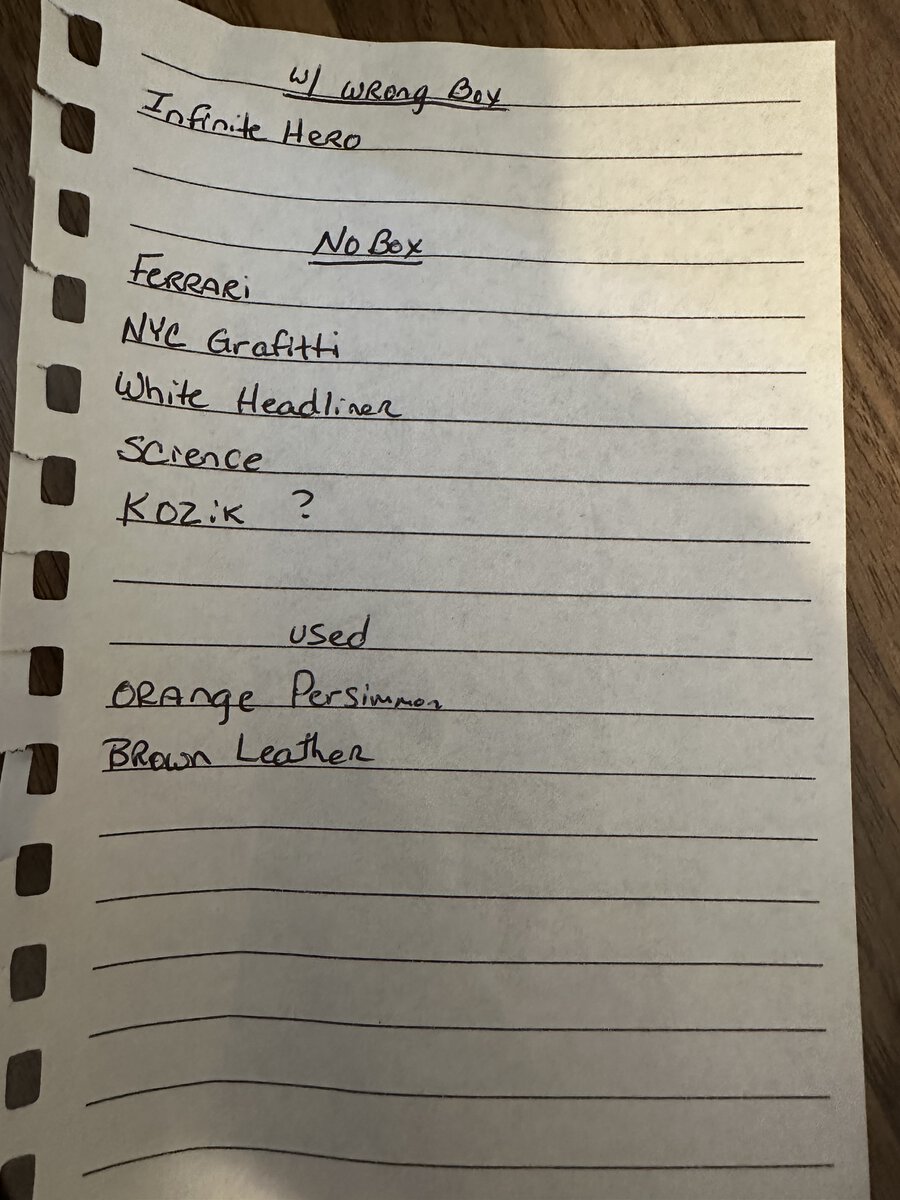 w/ wrong Box
Infinite Hero
No Box
Ferrari
NYC Grafitti
White Headliner
Science
Kozik ?
used
Orange Persimmon
Brown Leather